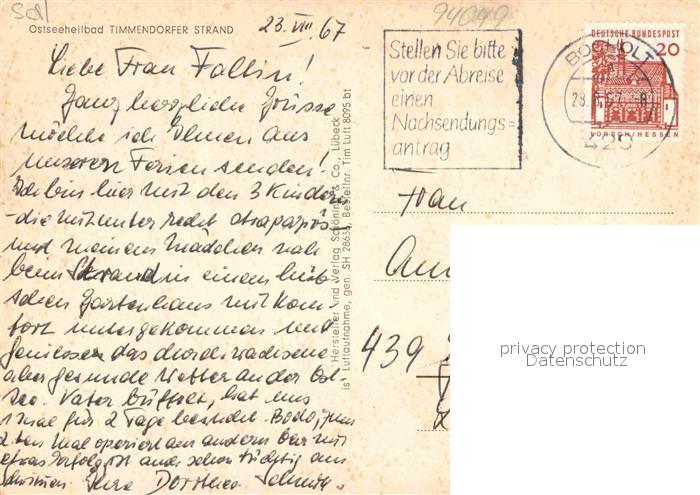 Ostseeheilbad TIMMENDORFER STRAND
23. VIII. 67
Liebe Frau Fallin!
Ganz herzliche Grüsse
möchte ich Ihnen aus
unseren Ferien senden!
Ich bin hier mit den 3 Kindern
-die mitunter recht strapaziös
und meinem Mädchen nah
beim Strand in einem hüb-
schen Gartenhaus mit Kom-
fort untergekommen und
geniessen das durchwachsene
aber gesunde Wetter an der Ost-
see. Vater büffelt, hat uns
1 mal für 2 Tage besucht. Bodo, zum
2ten Mal operiert am anderen Bein mit
etwas Erfolg ist auch schon tüchtig am
Ihre Dorothea
Hersteller und Verlag Schöning & Co., Lübeck
Luftaufnahme, gen. SH 28634, Bestellnr. Tim Luft 8095 bt
94049
Stellen Sie bitte
vor der Abreise
einen
Nachsendungs=
antrag
BOCHOLT
23.8.67
DEUTSCHE BUNDESPOST
20
LORSCH/HESSEN
Frau
439
privacy protection
Datenschutz